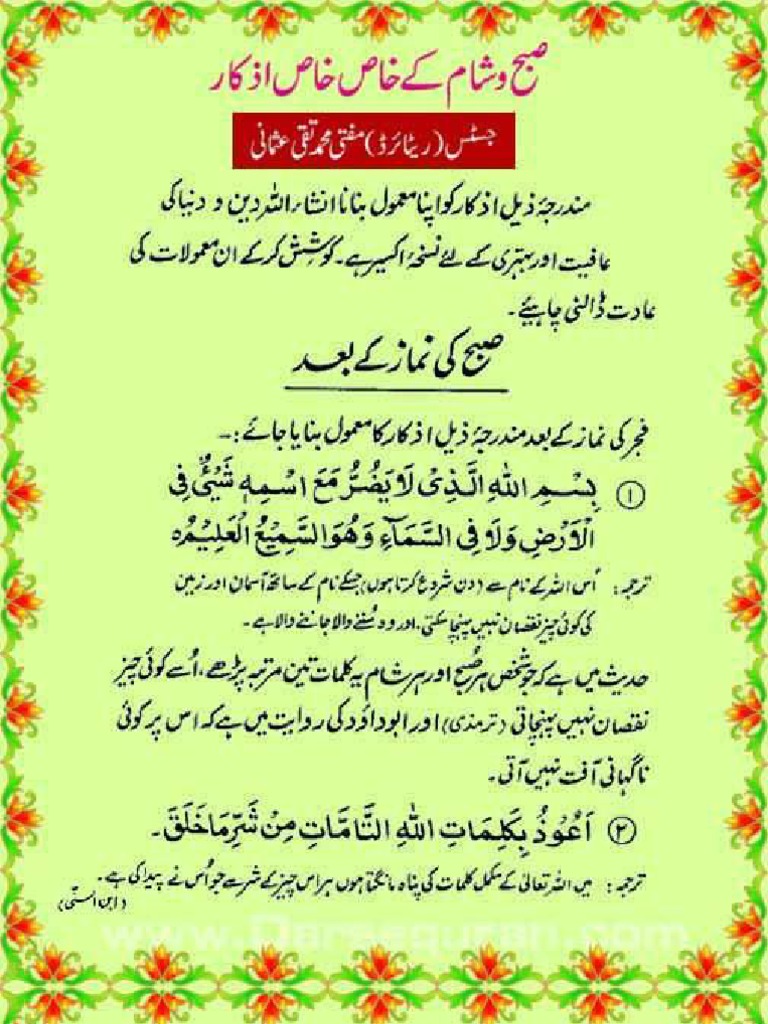 صبح و شام کے خاص خاص اذکار
جسٹس (ریٹائرڈ) مفتی محمد تقی عثمانی
مندرجۂ ذیل اذکار کو اپنا معمول بنانا انشاء اللہ دین و دنیا کی
عافیت اور بہتری کے لئے نسخۂ اکسیر ہے۔ کوشش کرکے ان معمولات کی
عادت ڈالنی چاہیئے۔
صبح کی نماز کے بعد
فجر کی نماز کے بعد مندرجۂ ذیل اذکار کا معمول بنایا جائے :۔
① بِسْمِ اللهِ الَّذِیْ لَا یَضُرُّ مَعَ اسْمِهٖ شَیْئٌ فِی
الْاَرْضِ وَلَا فِی السَّمَآءِ وَهُوَ السَّمِیْعُ الْعَلِیْمُ ہ
ترجمہ: اُس اللہ کے نام سے (دن شروع کرتا ہوں) جسکے نام کے ساتھ آسمان اور زمین
کی کوئی چیز نقصان نہیں پہنچا سکتی، اور وہ سُننے والا جاننے والا ہے۔
حدیث میں ہے کہ جو شخص ہر صُبح اور ہر شام یہ کلمات تین مرتبہ پڑھے، اُسے کوئی چیز
نقصان نہیں پہنچاتی (ترمذی) اور ابوداؤد کی روایت میں ہے کہ اس پر کوئی
ناگہانی آفت نہیں آتی۔
② اَعُوْذُ بِکَلِمَاتِ اللهِ التَّامَّاتِ مِنْ شَرِّ مَا خَلَقَ۔
ترجمہ: میں اللہ تعالیٰ کے مکمل کلمات کی پناہ مانگتا ہوں ہر اس چیز کے شر سے جو اُس نے پیدا کی ہے۔
(ابن السنّی)
www.Darsequran.com